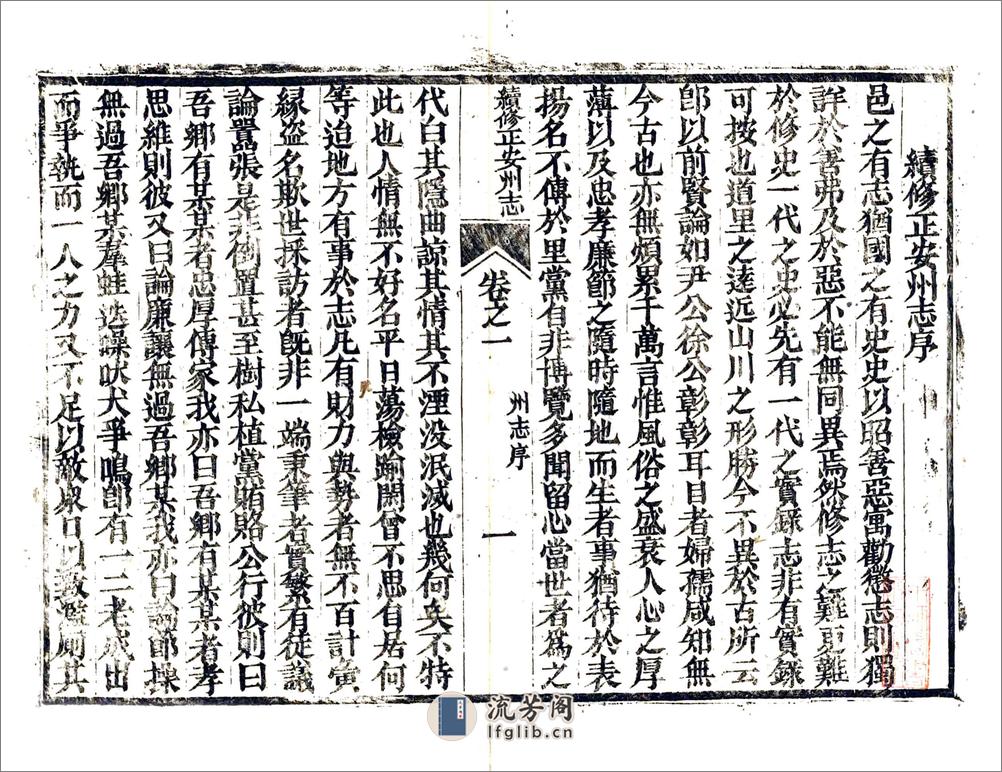 續修正安州志序
邑之有志猶國之有史史以昭善惡寓勸懲志則獨
詳於善弗及於惡不能無同異焉然修志之難更難
於修史一代之史必先有一代之實錄志非有實錄
可按也道里之遠近山川之形勝今不異於古所云
卽以前賢論如尹公徐公彰彰耳目者婦孺咸知無
今古也亦無煩累千萬言惟風俗之盛衰人心之厚
薄以及忠孝廉節之隨時隨地而生者事猶待於表
揚名不傳於里黨有非博覽多聞留心當世者為之
續修正安州志
卷之一
州志序
一
代白其隱曲諒其情其不湮没泯滅也幾何矣不特
此也人情無不好名平日蕩檢踰閑曾不思自居何
等迨地方有事於志凡有財力與勢者無不百計夤
緣盗名欺世採訪者旣非一端秉筆者實繁有徒議
論囂張是非倒置甚至樹私植黨賄賂公行彼則曰
吾鄉有某某者忠厚傳家我亦曰吾鄉有某某者孝
思維則彼又曰論廉讓無過吾鄉某我亦曰論節操
無過吾鄉某羣蛙迭噪吠犬爭鳴卽有一二老成出
而爭執而一人之力又不足以敵眾口以致濫廁其
流芳阁
lfglib.cn